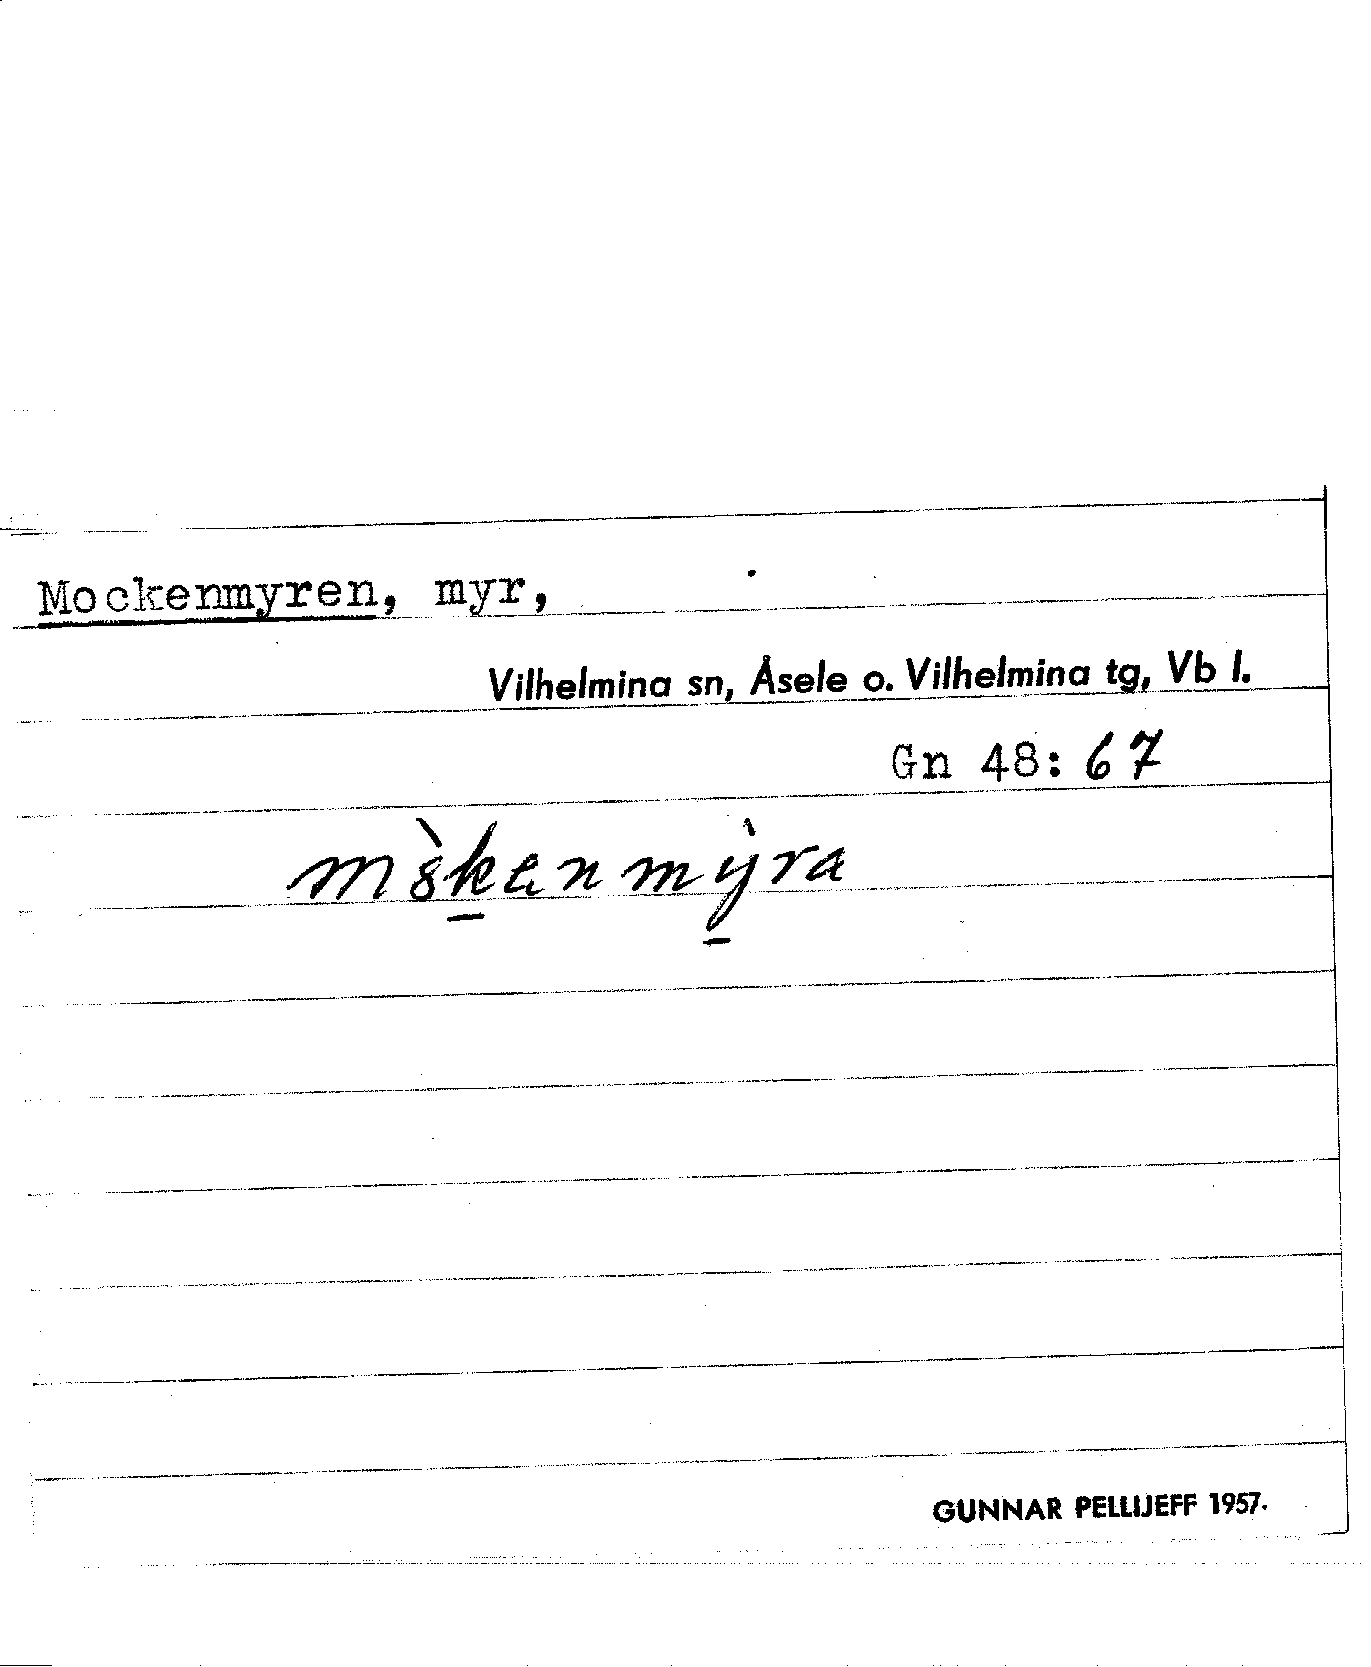 Mockenmyren, myr,
Vilhelmina sn, Åsele o. Vilhelmina tg, Vb l.
Gn 48: 67
m8̀k̲enmỳ̲ra
GUNNAR PELLIJEFF 1957.